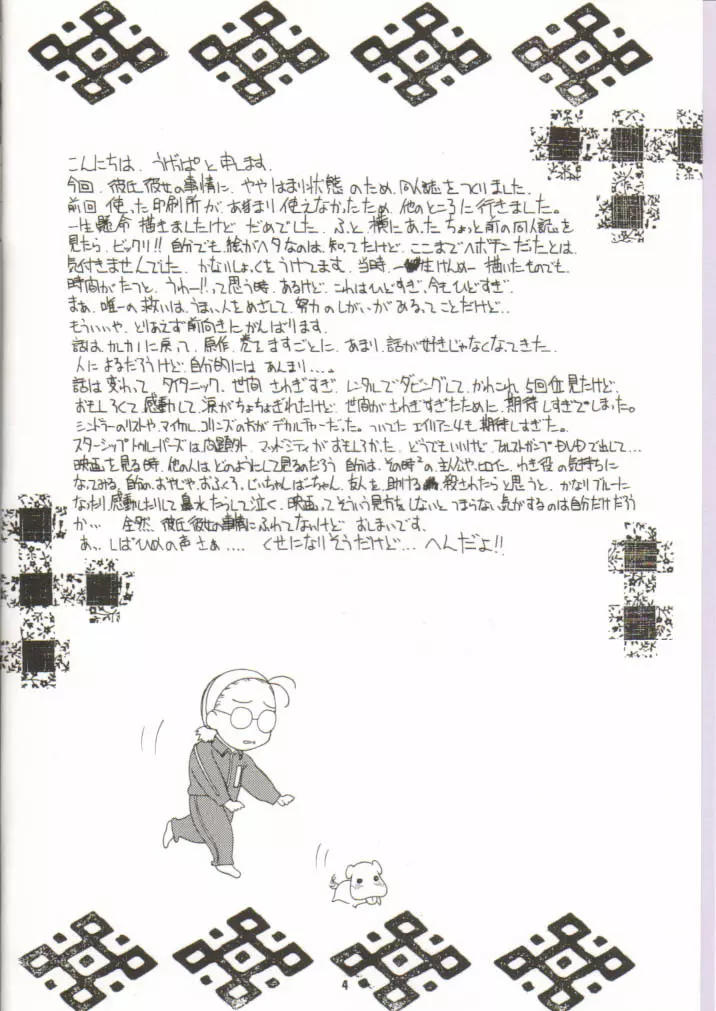 こんにちは、うげっぱと申します。
今回、彼氏彼女の事情に、ややはまり状態のため、同人誌をつくりました。
前回使った印刷所が、あまり使えなかったため、他のところに行きました。
一生懸命描きましたけど、だめでした。ふと横にあったちょっと前の同人誌を
見たら、ビックリ!!自分でも絵がヘタなのは、知ってたけど、ここまでヘボチンだったとは、
気付きませんでした。かないしょっくをうけてます。当時、一生けんめー描いたものでも、
時間がたつと、うわー!!って思う時、あるけど、これはひどすぎ、今もひどすぎ。
まぁ、唯一の救いは、うまい人をめざして、努力のしがいがあるってことだけど…
もういいや、とりあえず前向きにがんばります。
話は、カレカノに戻って、原作、巻をますごとに、あまり、話が好きじゃなくなってきた。
人によるだろうけど、自分的には、あんまり….。
話は変わって、タイタニック、世間さわぎすぎ、レンタルでダビングして、かれこれ5回位見たけど、
おもしろくて、感動して、涙がちょちょぎれたけど、世間がさわぎすぎたために、期待しすぎてしまった。
シンドラーのリストや、マイケル・コリンズの方がデカルチャーだった。ついでに、エイリアン4も期待しすぎた。
スターシップトゥルーパーズは問題外、マッドシティがおもしろかった、どうでもいいけど、フォレストガンプDVDで出して…
映画を見る時、他の人は、どのようにして見るのだろう、自分は、その時々の主人公や、ヒロイン、わき役の気持ちに
なってみる、自分の、おやじや、おふくろ、じいちゃん、ばーちゃん、友人を、助ける、殺されたらと思うと、かなりブルーに
なったり、感動したりして、鼻水たらして泣く、映画ってそういう見方をしないと、つまらない気がするのは自分だけだろう
か…　全然、彼氏彼女の事情にふれてないけど、おしまいです。
あっ、しばひめの声さぁ….　くせになりそうだけど…　へんだよ!!
4